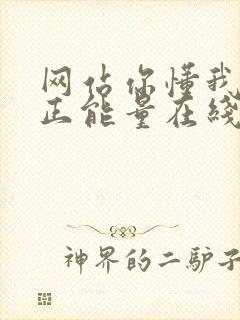 网站你懂我
正能量在线
神界的二驴子